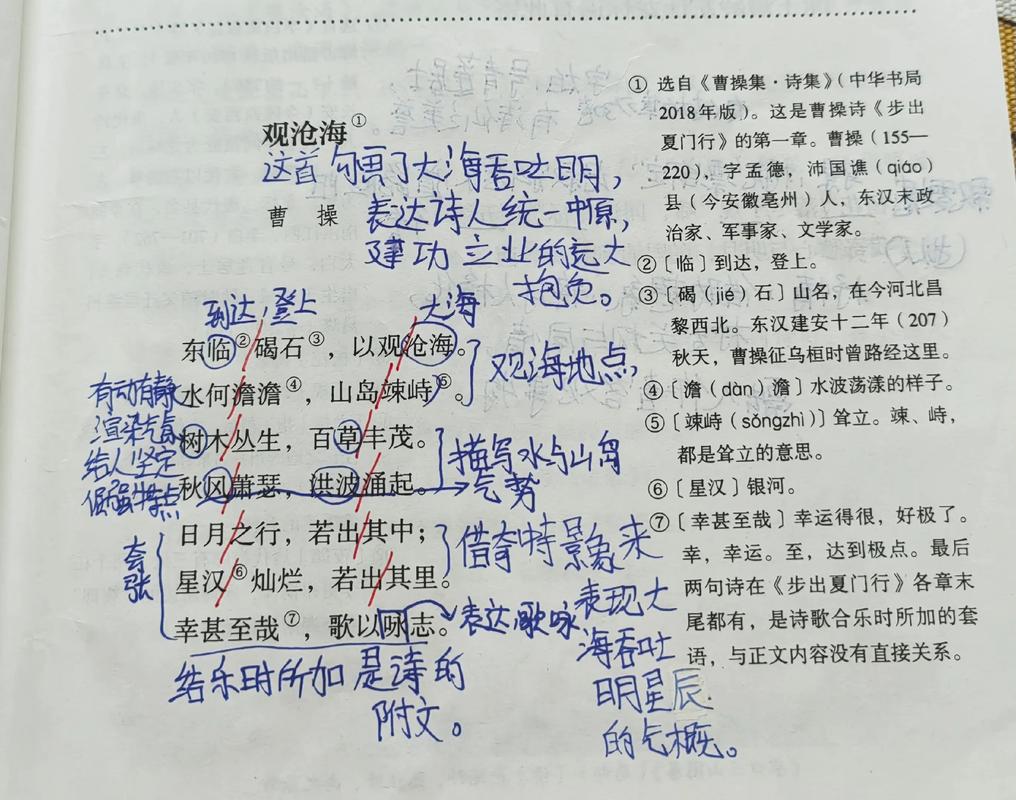 观沧海①
这首 勾画了大海吞吐日明，
曹 操
表达诗人统一中原，
建功立业的远大
抱负。
到达,登上
大海
东临②碣石③，以观沧海。
观海地点,
水何澹澹④，山岛竦峙⑤。
有动有静
渲染气氛
给人坚定
倔强特点
树木丛生，百草丰茂。
描写水与山岛
气势
秋风萧瑟，洪波涌起。
日月之行，若出其中；
夸张
借奇特景象来
表现大
海吞吐
明星辰
的气概。
星汉⑥灿烂，若出其里。
幸甚至哉⑦，歌以咏志。
表达,歌咏
结乐时所加 是诗的
附文。
① 选自《曹操集·诗集》（中华书局
2018年版）。这是曹操诗《步出
夏门行》的第一章。曹操（155—
220），字孟德，沛国谯（qiáo）
县（今安徽亳州）人，东汉末政
治家、军事家、文学家。
②〔临〕到达，登上。
③〔碣（jié）石〕山名，在今河北昌
黎西北。东汉建安十二年（207）
秋天，曹操征乌桓时曾路经这里。
④〔澹（dàn）澹〕水波荡漾的样子。
⑤〔竦峙（sǒngzhì）〕耸立。竦、峙，
都是耸立的意思。
⑥〔星汉〕银河。
⑦〔幸甚至哉〕幸运得很，好极了。
幸，幸运。至，达到极点。最后
两句诗在《步出夏门行》各章末
尾都有，是诗歌合乐时所加的套
语，与正文内容没有直接关系。